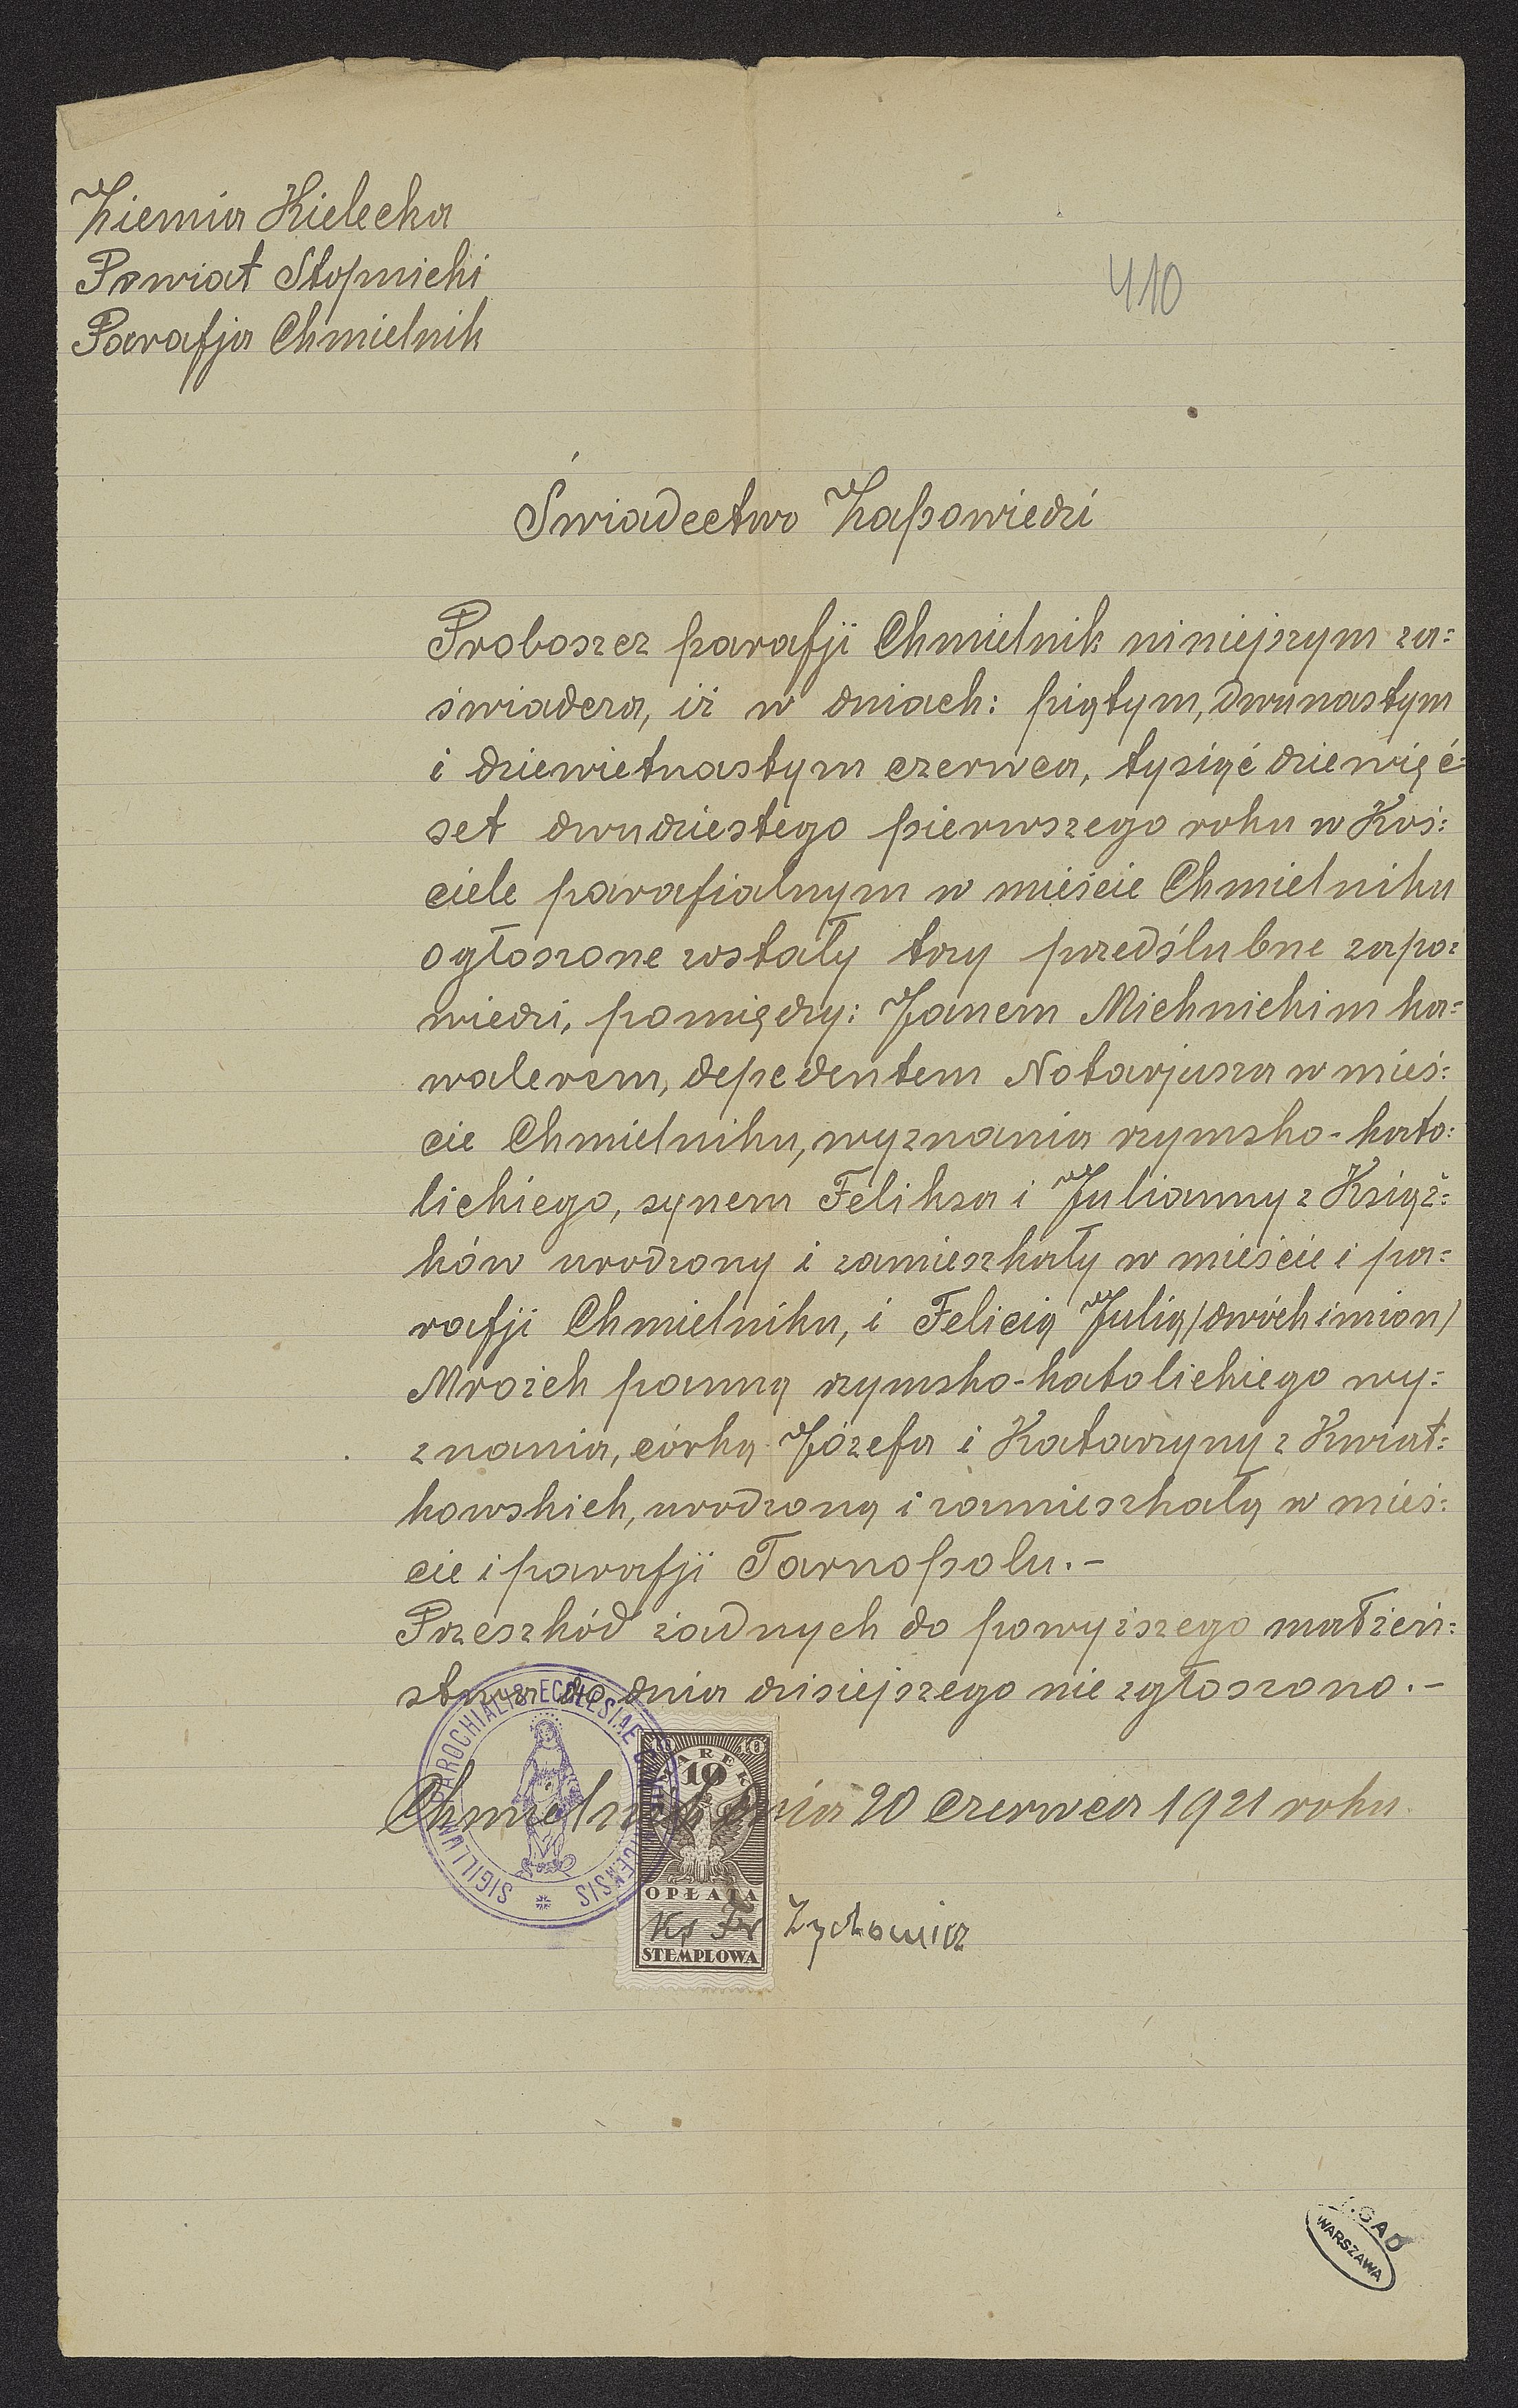 Ziemia Kielecka
Powiat Stopnicki
Parafja Chmielnik
410
Świadectwo Zapowiedzi
Proboszcz parafji Chmielnik niniejszym za=
świadcza, iż w dniach: piątym, dwunastym
i dziewietnastym czerwca, tysiąć dziewięć=
set dwudziestego pierwszego roku w Koś=
ciele parafialnym w mieście Chmielniku
ogłoszone zostały trzy przedślubne zapo=
wiedzi, pomiędzy: Janem Michnickim ka=
walerem, depedentem Notarjusza w mieś=
cie Chmielniku, wyznania rzymsko-kato=
lickiego, synem Feliksa i Julianny z Książ=
ków urodzony i zamieszkały w mieście i pa=
rafji Chmielniku, i Felicią Julią /dwóch imion/
Mrozek panną rzymsko-katolickiego wy=
znania, córką Józefa i Katarzyny z Kwiat=
kowskich, urodzoną i zamieszkałą w mieś=
cie i parafji Tarnopolu.-
Przeszkód żadnych do powyższego małżeń=
stwa do dnia dzisiejszego nie zgłoszono.-
Chmielnik dnia 20 czerwca 1921 roku.
SIGILLUM PAROCHIALIS ECCLESIAE
10 10
MAREK
10
OPŁATA
STEMPLOWA
Ks Fr Zychowicz
AGAD
WARSZAWA